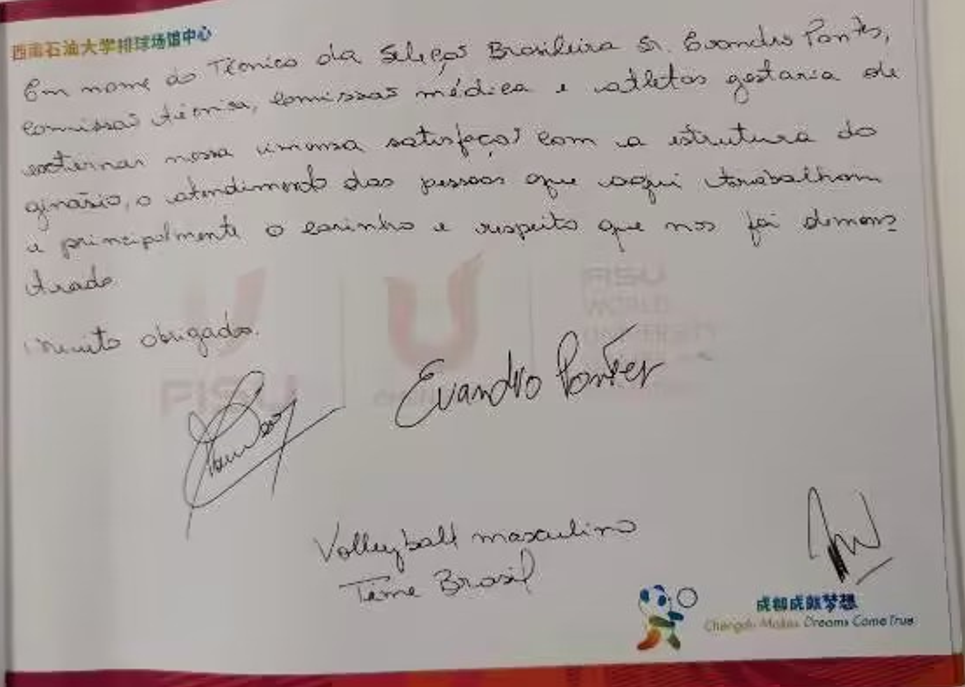 西南石油大学排球场馆中心
Em nome do Técnico da Seleção Brasileira Sr. Evandro Pontes,
comissão técnica, comissão médica e atletas gostaria de
externar nossa imensa satisfação com a estrutura do
ginásio, o atendimento das pessoas que aqui trabalham
e principalmente o carinho e respeito que nos foi demons
trado.
Muito obrigado.
FISU
WORLD
UNIVERSITY
FISU
Evandro Pontes
Volleyball masculino
Time Brasil
成都成就梦想
Chengdu Makes Dreams Come True